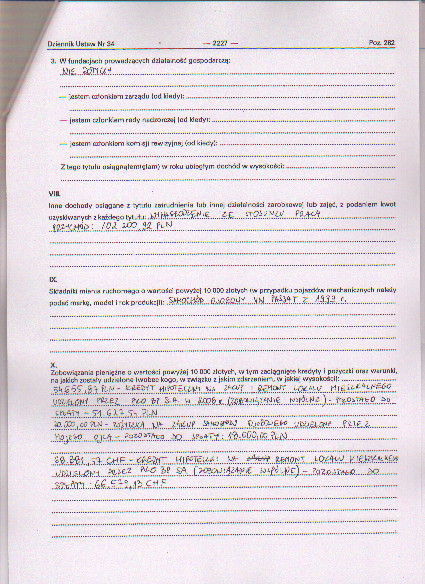 Dziennik Ustaw Nr 34 — 2227 — Poz. 282
3. W fundacjach prowadzących działalność gospodarczą:
NIE DOTYCZY
— jestem członkiem zarządu (od kiedy):
— jestem członkiem rady nadzorczej (od kiedy):
— jestem członkiem komisji rewizyjnej (od kiedy):
Z tego tytułu osiągnąłem(ęłam) w roku ubiegłym dochód w wysokości:
VIII.
Inne dochody osiągane z tytułu zatrudnienia lub innej działalności zarobkowej lub zajęć, z podaniem kwot
uzyskiwanych z każdego tytułu: WYNAGRODZENIE ZE STOSUNKU PRACY
PRZYCHÓD: 102 200,92 PLN
IX.
Składniki mienia ruchomego o wartości powyżej 10 000 złotych (w przypadku pojazdów mechanicznych należy
podać markę, model i rok produkcji): SAMOCHÓD OSOBOWY VW PASSAT Z 1999 r.
X.
Zobowiązania pieniężne o wartości powyżej 10 000 złotych, w tym zaciągnięte kredyty i pożyczki oraz warunki,
na jakich zostały udzielone (wobec kogo, w związku z jakim zdarzeniem, w jakiej wysokości):
PLN - KREDYT HIPOTECZNY NA ZAKUP I REMONT LOKALU MIESZKALNEGO
UDZIELONY PRZEZ PKO BP S.A. W 2008 r. (ZOBOWIĄZANIE WSPÓLNE) - POZOSTAŁO DO
SPŁATY - PLN
20.000,00 PLN - POŻYCZKA NA ZAKUP SAMOCHODU OSOBOWEGO UDZIELONA PRZEZ
MOJEGO OJCA - POZOSTAŁO DO SPŁATY: PLN
CHF - KREDYT HIPOTECZNY NA REMONT LOKALU MIESZKALNEGO
UDZIELONY PRZEZ PKO BP SA (ZOBOWIĄZANIE WSPÓLNE) - POZOSTAŁO DO
SPŁATY CHF